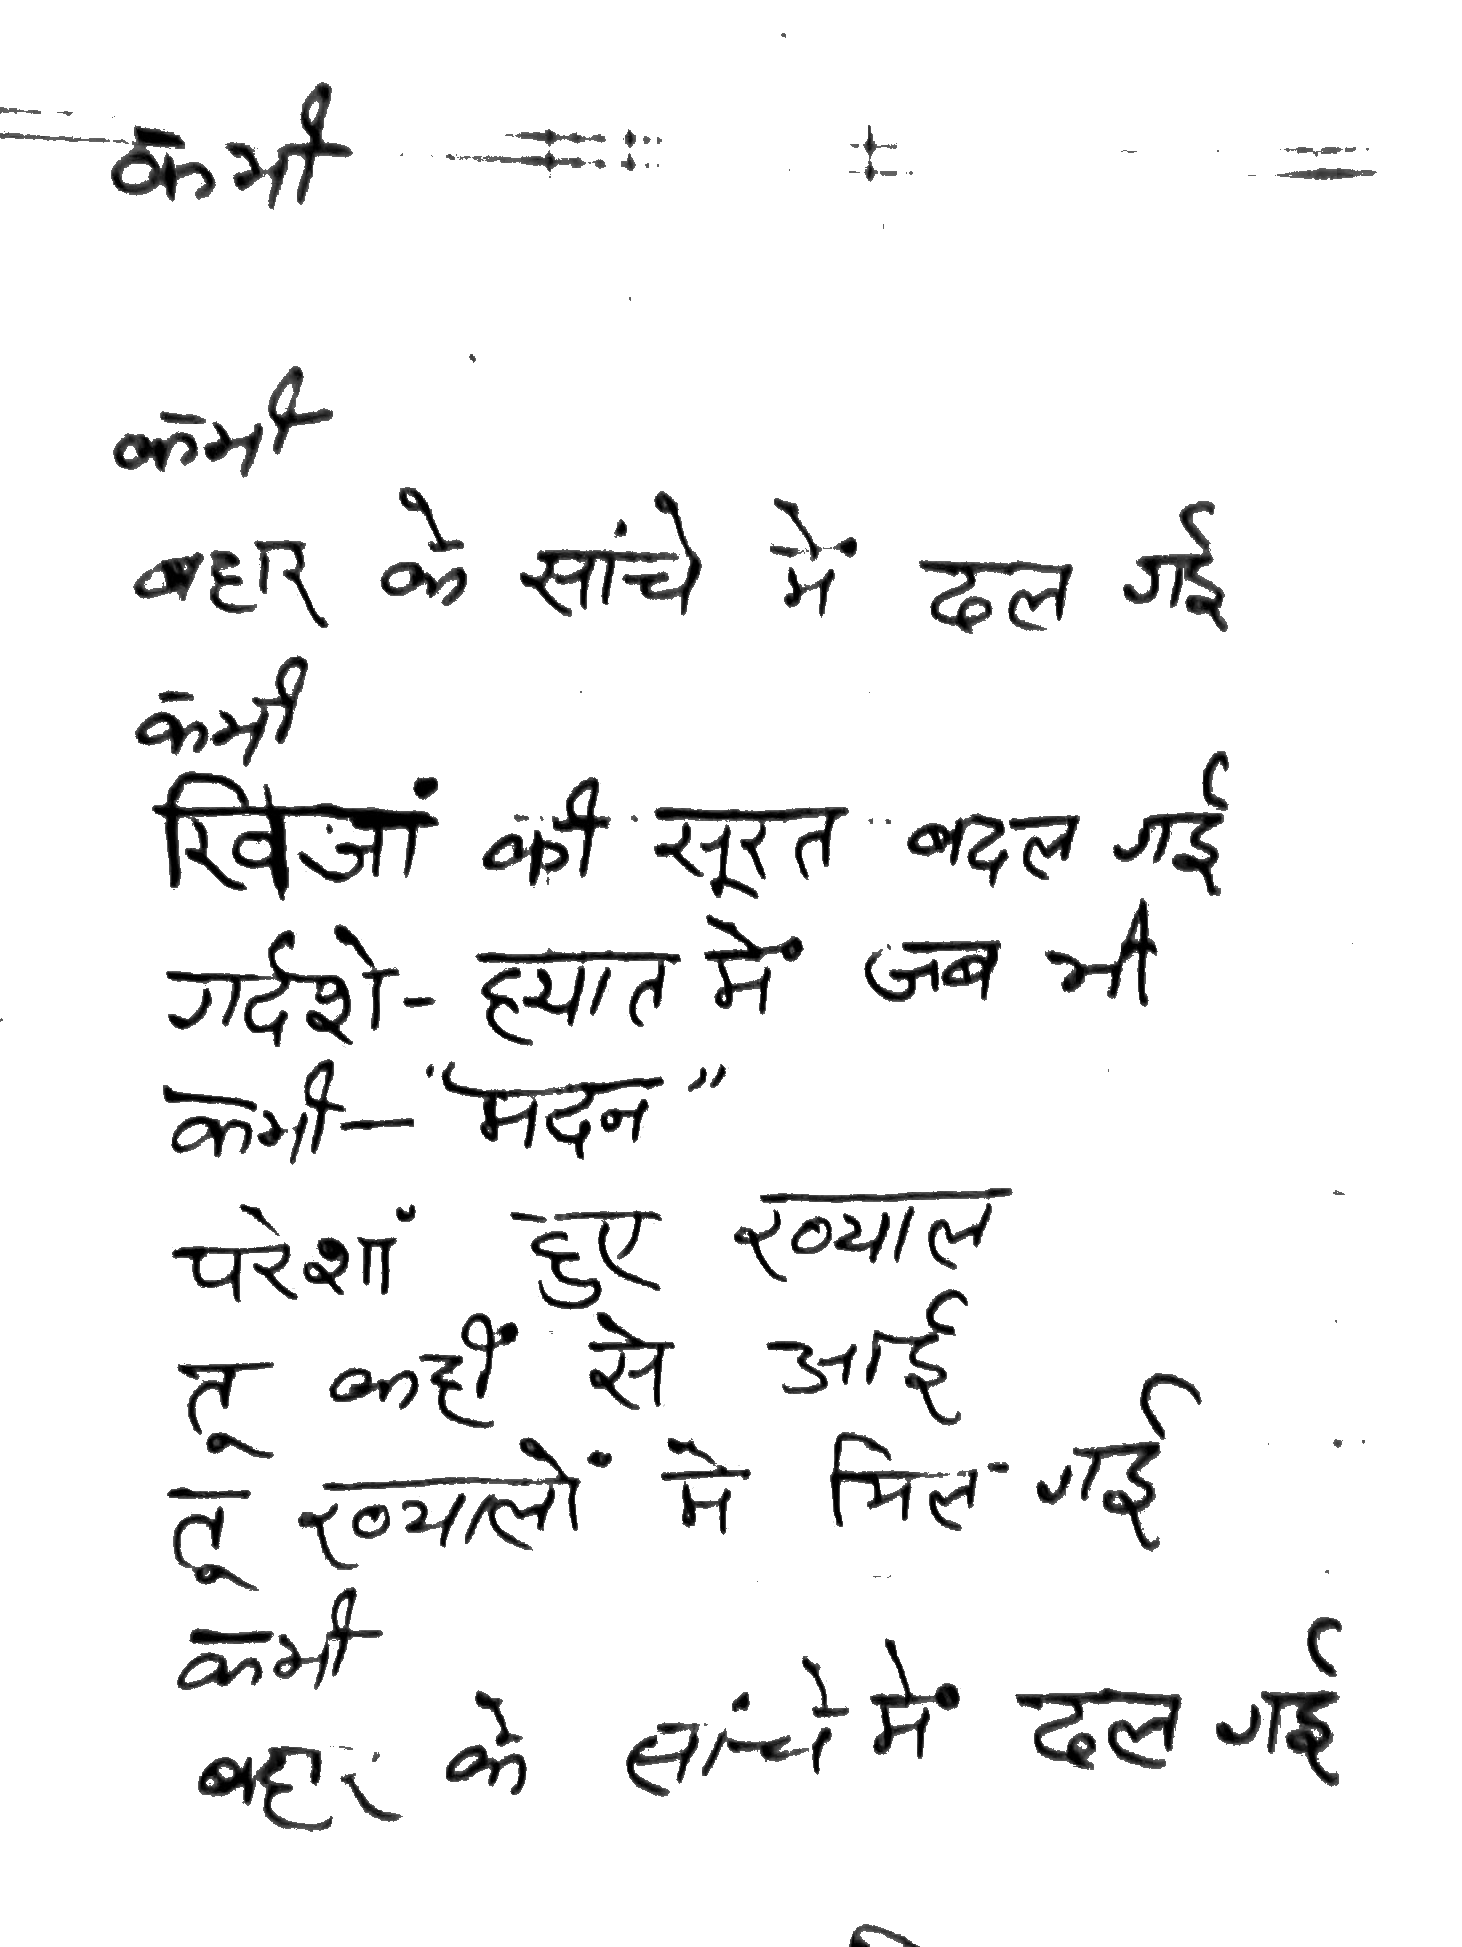 कभी
कभी
बहार के सांचे में ढल गई
कभी
खिजां की सूरत बदल गई
गर्दशे - हयात में जब भी
कभी - "मदन"
परेशां हुए ख्याल
तू कहीं से आई
तू ख्यालों में मिल गई
कभी
बहार के सांचे में ढल गई